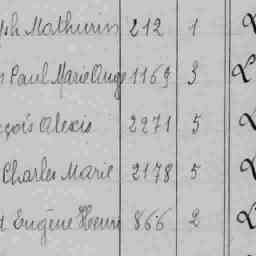 ph Mathurin 212 1
Paul Marie Ange 1169 3 L
çois Alexis 2271 5 L
Charles Marie 2178 5 L
Eugène Henri 866 2 L